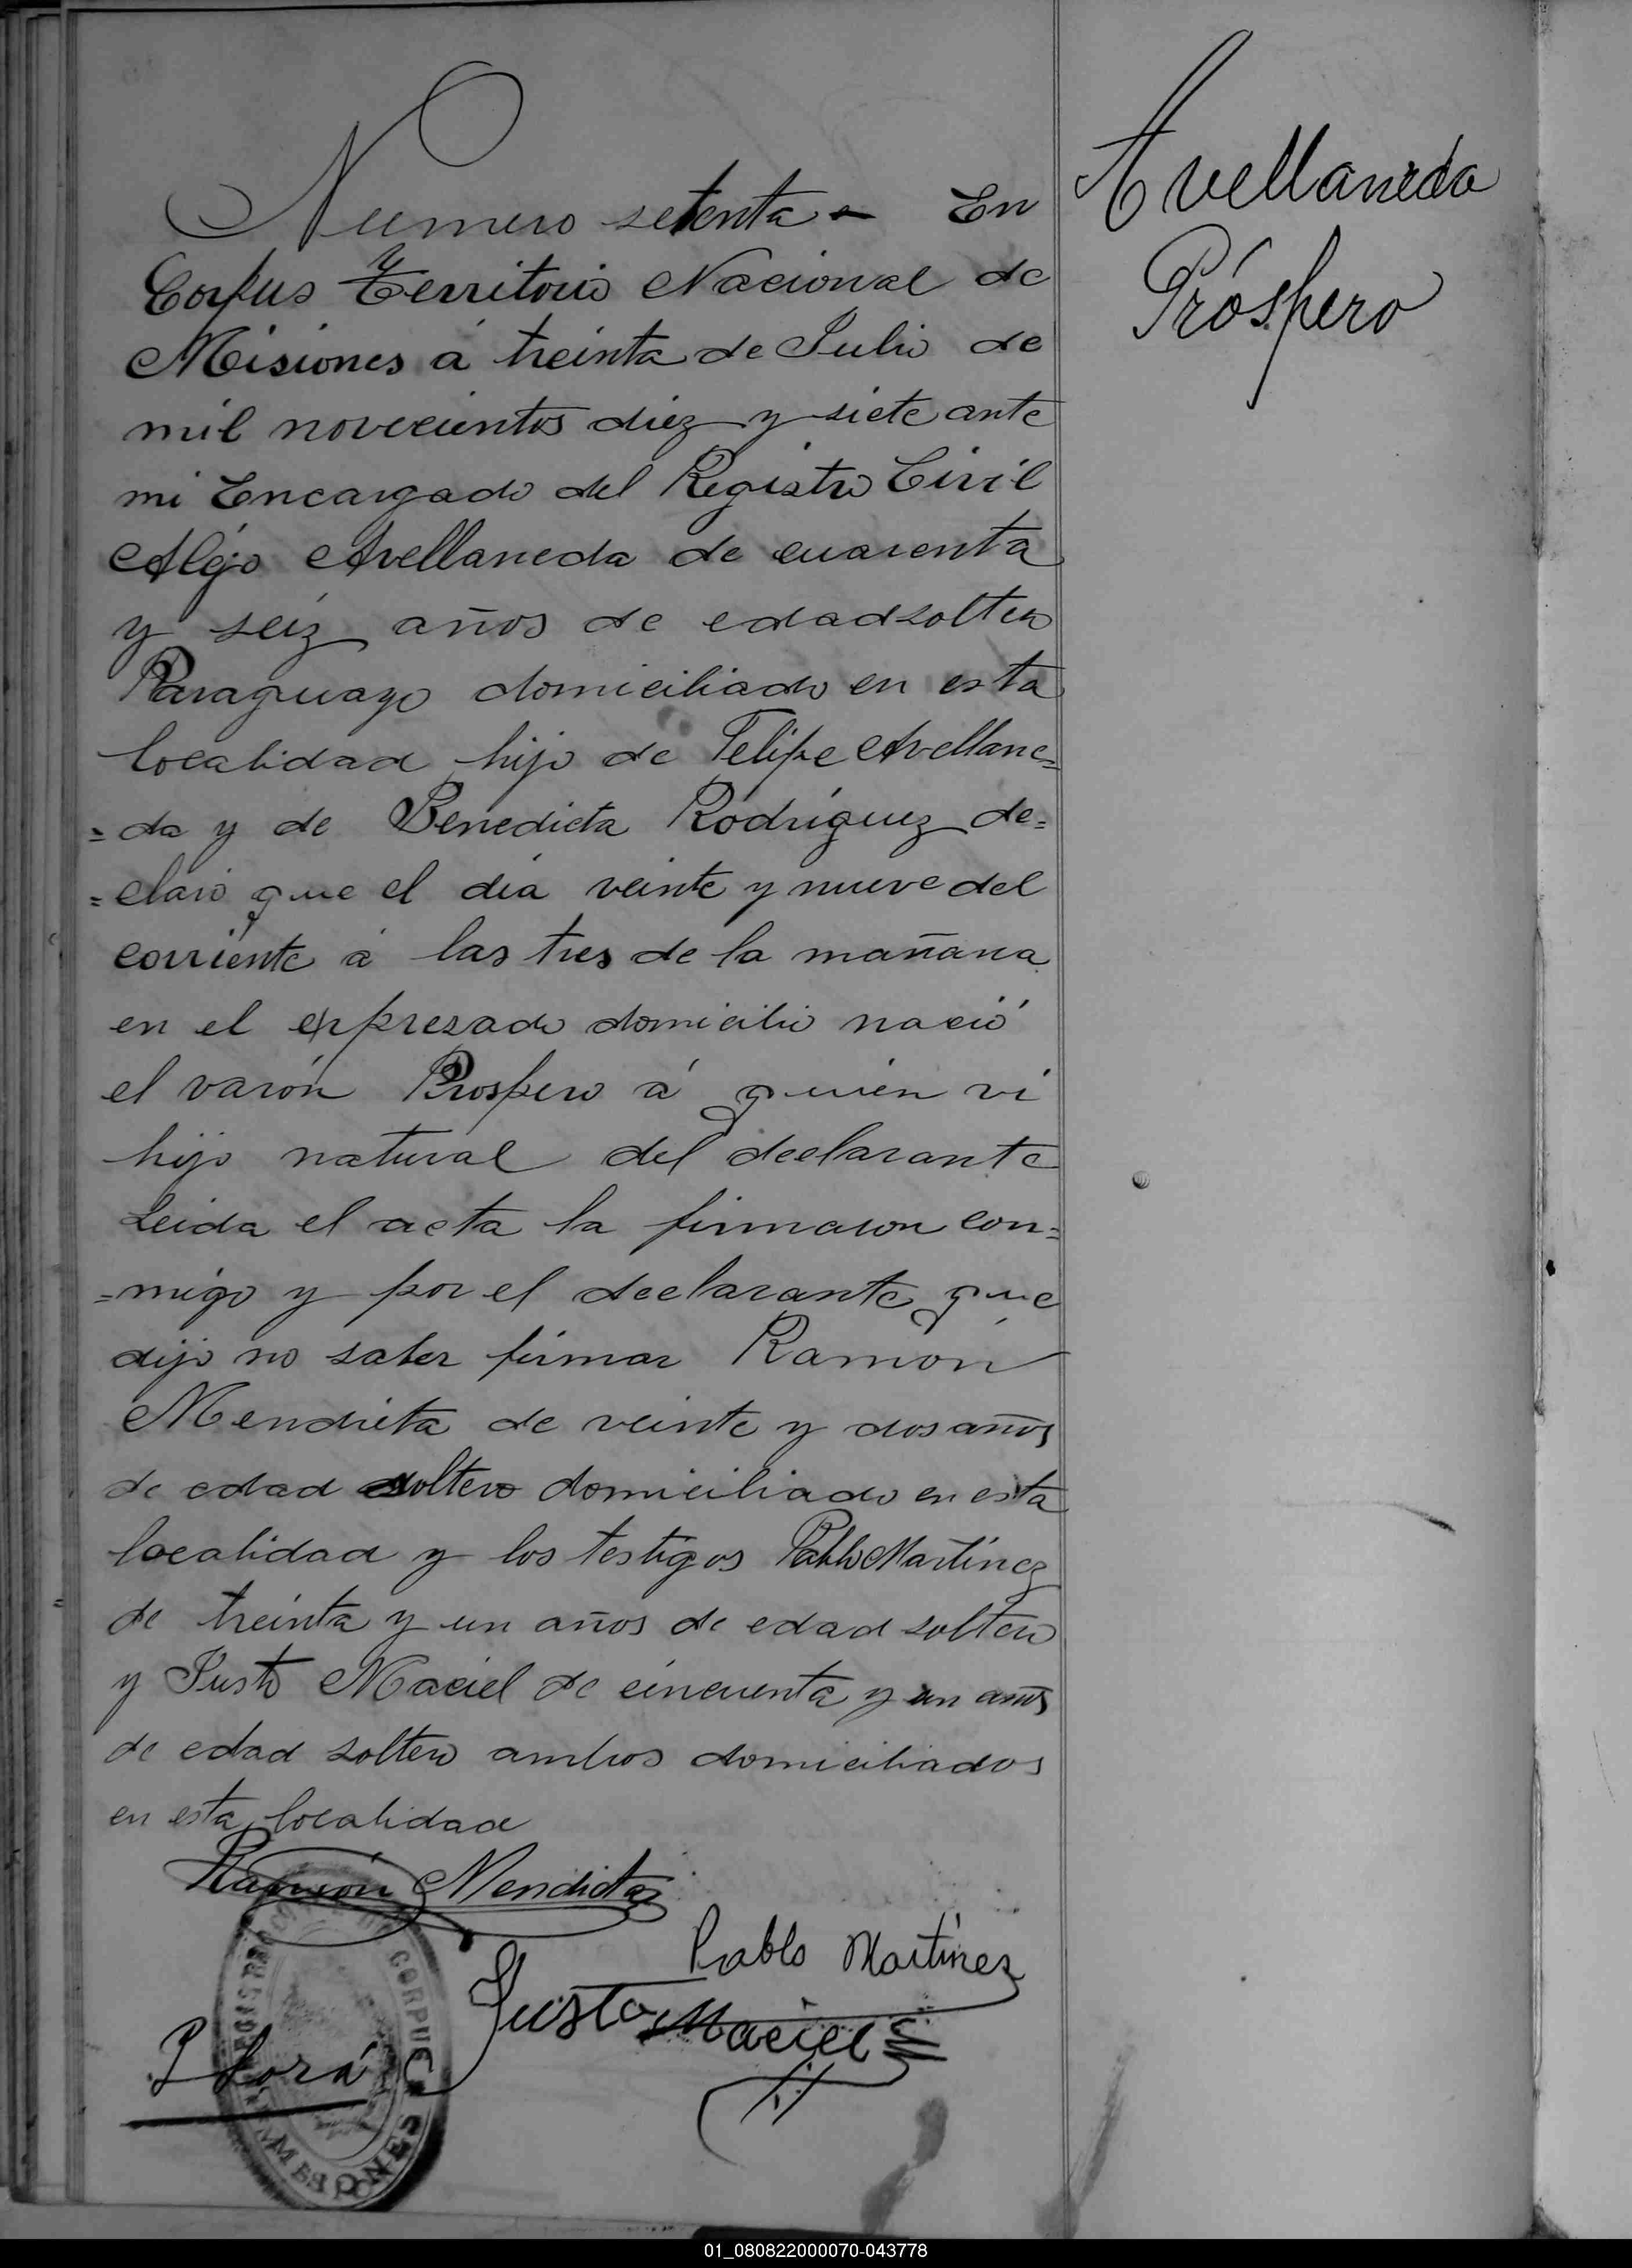 Avellaneda
Próspero
Numero setenta - En
Corpus Territorio Nacional de
Misiones á treinta de Julio de
mil novecientos diez y siete ante
mi Encargado del Registro Civil
Alejo Avellaneda de cuarenta
y seiz años de edad soltero
Paraguayo domiciliado en esta
localidad hijo de Felipe Avellane=
=da y de Benedicta Rodríguez de=
=claró que el día veinte y nueve del
corriente á las tres de la mañana
en el expresado domicilio nació
el varón Prospero á quien vi
hijo natural del declarante
Leida el acta la firmaron con=
=migo y por el declarante que
dijo no saber firmar Ramón
Mendieta de veinte y dos años
de edad soltero domiciliado en esta
localidad y los testigos Pablo Martínez
de treinta y un años de edad soltero
y Justo Maciel de cincuenta y un años
de edad soltero ambos domiciliados
en esta localidad
Ramón Mendieta
Pablo Martinez
Justo Maciel
CORPUS
MISIONES
01_080822000070-043778